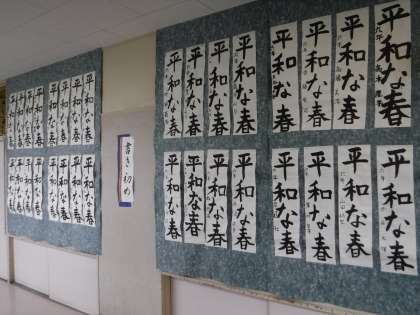 平和な春
平和な春
平和な春
平和な春
平和な春
平和な春
平和な春
平和な春
平和な春
平和な春
平和な春
平和な春
平和な春
平和な春
平和な春
平和な春
書き初め
平和な春
平和な春
平和な春
平和な春
平和な春
平和な春
平和な春
平和な春
平和な春
平和な春
平和な春
平和な春
平和な春
平和な春
平和な春
平和な春